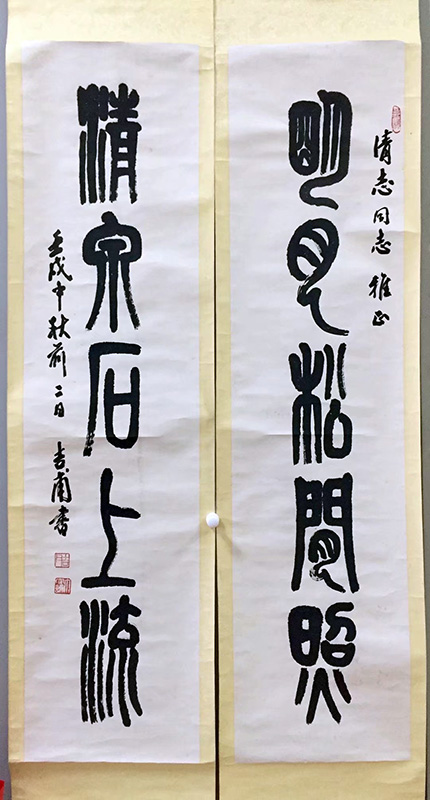 清志同志 雅正
明月松閒照
清泉石上流
壬戌中秋前二日 吉甫書